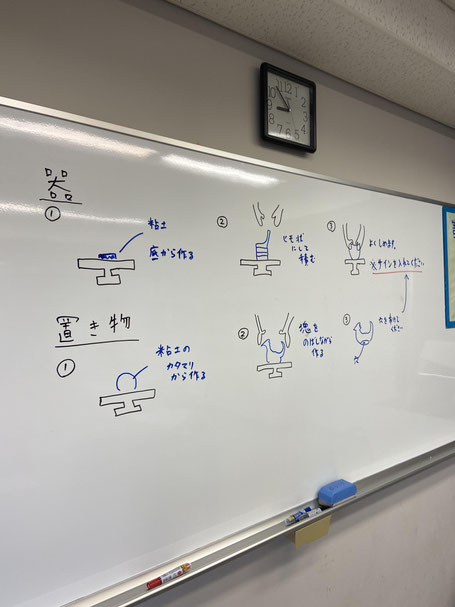 器
①
粘土
底から作る
②
ひも状
にして
積む
③
よくしめます。
※サインを入れてください
置き物
①
粘土の
カタマリ
から作る
②
塊を
のばしながら
作る
③
穴を開けて
ください
12
1
2
3
4
5
6
7
8
9
10
11